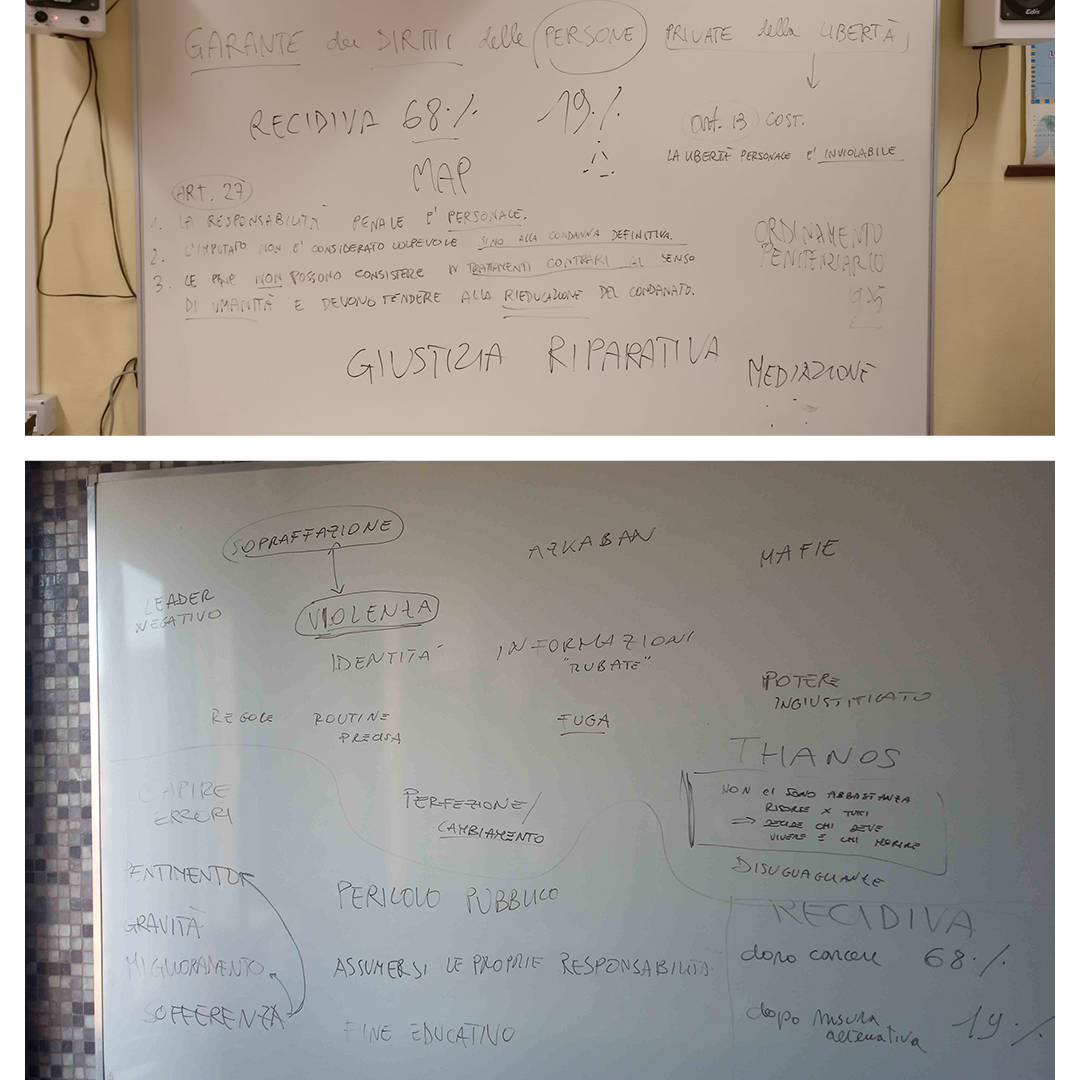 GARANTE dei DIRITTI delle PERSONE PRIVATE della LIBERTÀ
RECIDIVA 68·/. 19·/.
MAP
art. 13 COST.
LA LIBERTÀ PERSONALE E' INVIOLABILE
ART. 27
1. LA RESPONSABILITÀ PENALE E' PERSONALE.
2. L'IMPUTATO NON E' CONSIDERATO COLPEVOLE SINO ALLA CONDANNA DEFINITIVA.
3. LE PENE NON POSSONO CONSISTERE IN TRATTAMENTI CONTRARI AL SENSO
DI UMANITÀ E DEVONO TENDERE ALLA RIEDUCAZIONE DEL CONDANATO.
ORDINAMENTO
PENITENZIARIO
GIUSTIZIA RIPARATIVA
MEDIAZIONE
Edis
SOPRAFFAZIONE
AZKABAN
MAFIE
LEADER
NEGATIVO
VIOLENZA
IDENTITA'
INFORMAZIONI
"RUBATE"
POTERE
INGIUSTIFICATO
REGOLE
ROUTINE
PRECISA
FUGA
THANOS
NON CI SONO ABBASTANZA
RISORSE X TUTTI
=> DECIDE CHI DEVE
VIVERE E CHI MORIRE
DISUGUAGLIANZE
CAPIRE
ERRORI
PERFEZIONE/
CAMBIAMENTO
PENTIMENTO
GRAVITÀ
MIGLIORAMENTO
SOFFERENZA
PERICOLO PUBBLICO
ASSUMERSI LE PROPRIE RESPONSABILITÀ
FINE EDUCATIVO
RECIDIVA
dopo carcere 68·/.
dopo misura
alternativa 19·/.